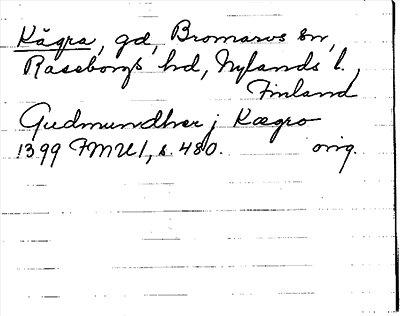 Kågra, gd, Bromarvs sn,
Raseborgs hd, Nylands l.,
Finland
Gudmundher j Kægro
1399 FMU 1, s. 480. orig.